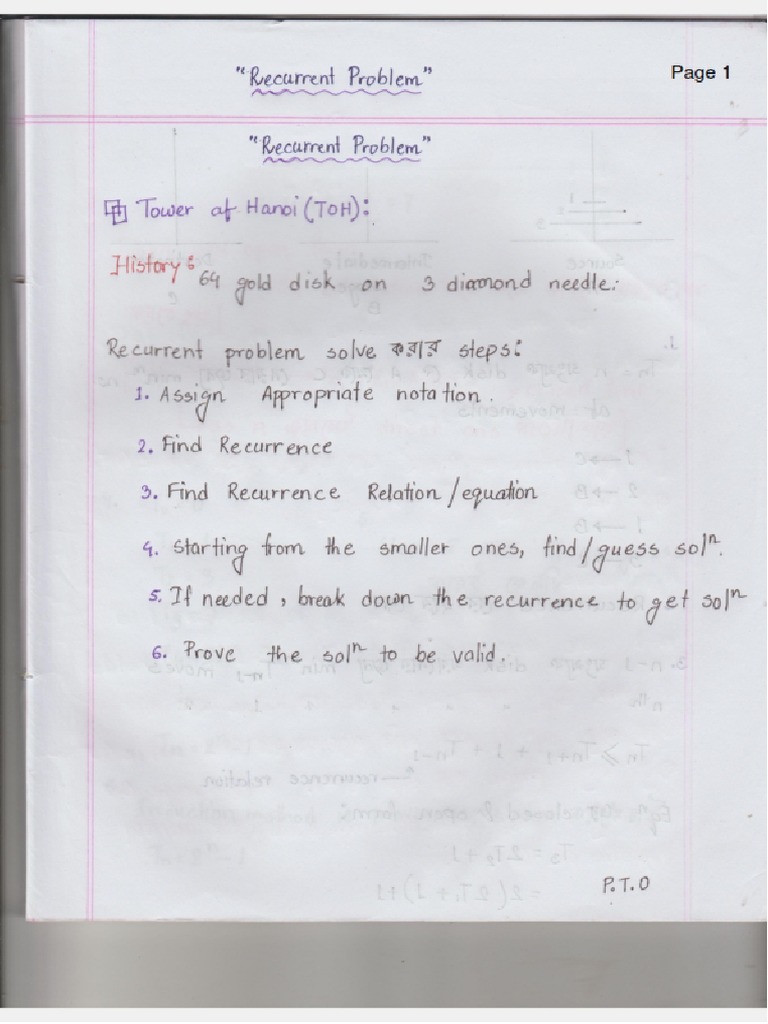 "Recurrent Problem"
Page 1
"Recurrent Problem"
Tower of Hanoi (TOH):
History: 64 gold disk on 3 diamond needle.
Recurrent problem solve করার steps:
1. Assign Appropriate notation.
2. Find Recurrence
3. Find Recurrence Relation/equation
4. Starting from the smaller ones, find/guess solⁿ.
5. If needed, break down the recurrence to get solⁿ
6. Prove the solⁿ to be valid.
P.T.O